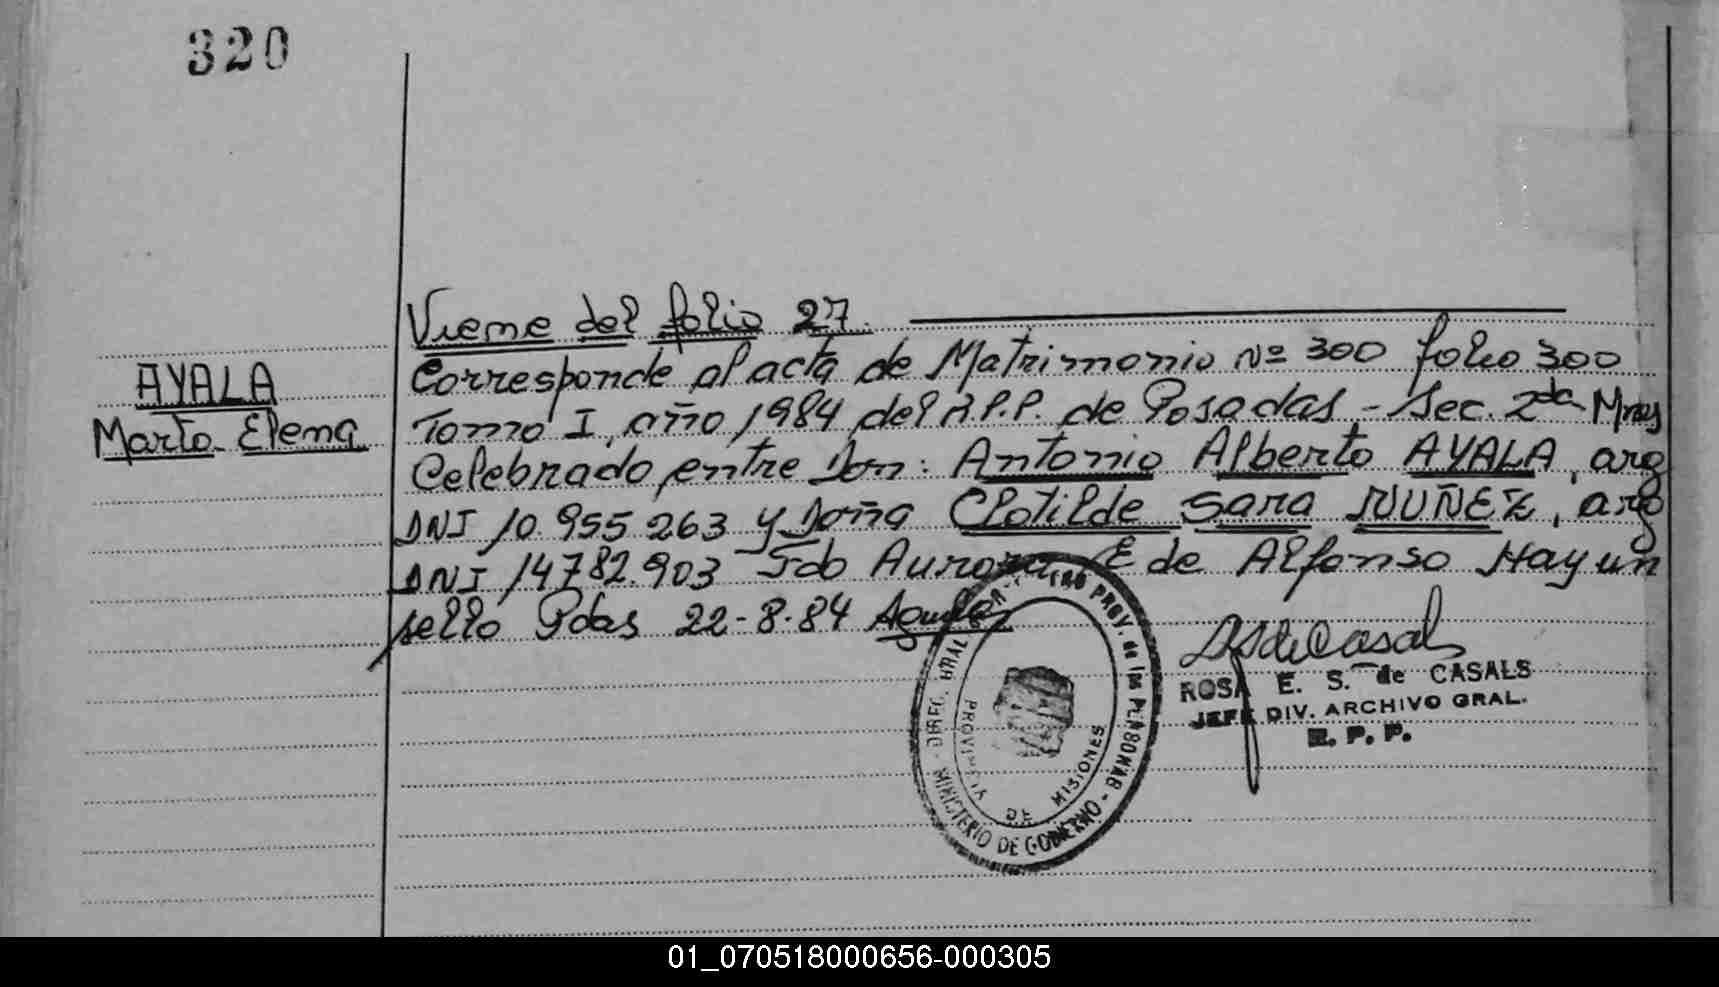 320
Viene del folio 27.
AYALA
Marta Elena
Corresponde al acta de Matrimonio Nº 300 folio 300
Tomo I, año 1984 del R.P.P. de Posadas - Sec. 2da Mnes
Celebrado entre Don: Antonio Alberto AYALA, arg
DNI 10.955.263 y Doña Clotilde Sara NUÑEZ, arg
DNI 14782.903 Fdo Aurora E de Alfonso Hay un
sello Pdas 22-8-84
ROSA E. S. de CASALS
JEFE DIV. ARCHIVO GRAL.
R. P. P.
DIREC. GRAL PROV. de las PERSONAS - MINISTERIO DE GOBIERNO
PROVINCIA DE MISIONES
01_070518000656-000305